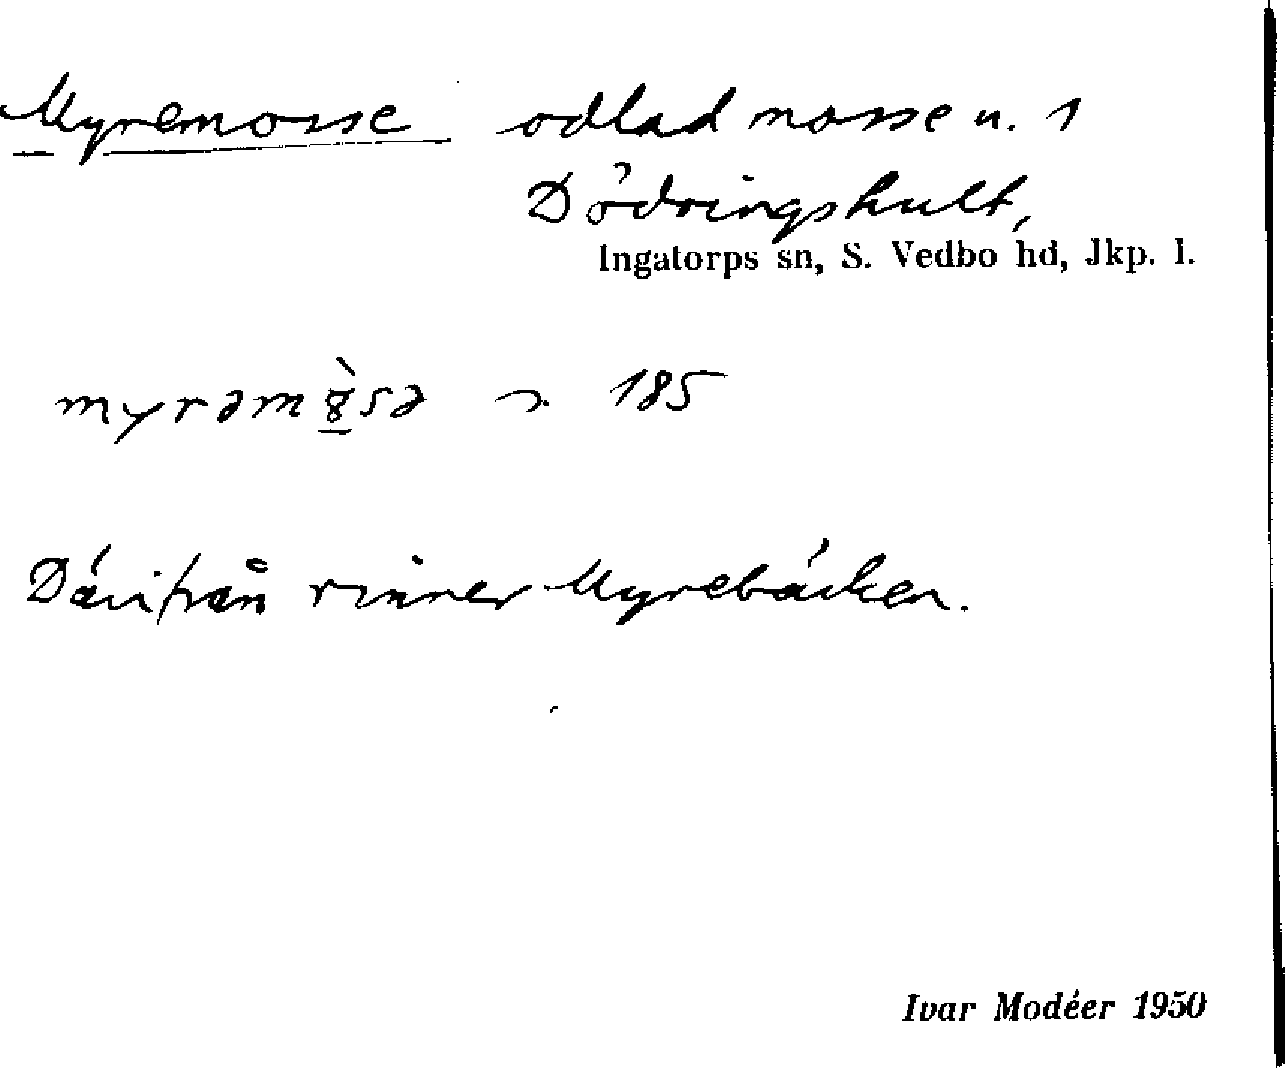 Myremosse odlad mosse u. 1
Dödringshult,
Ingatorps sn, S. Vedbo hd, Jkp. l.
185
Därifrån rinner Myrebäcken.
Ivar Modéer 1950